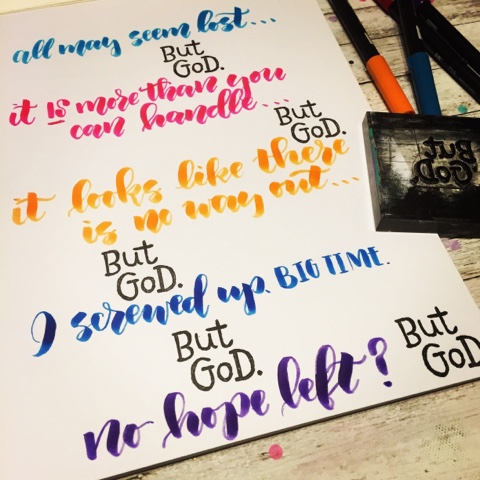 all may seem lost...
But
GOD.
it IS more than you
can handle...
But
GOD.
it looks like there
is no way out...
But
GOD.
I screwed up. BIG TIME.
But
GOD.
no hope left?
But
GOD.
But
GOD.